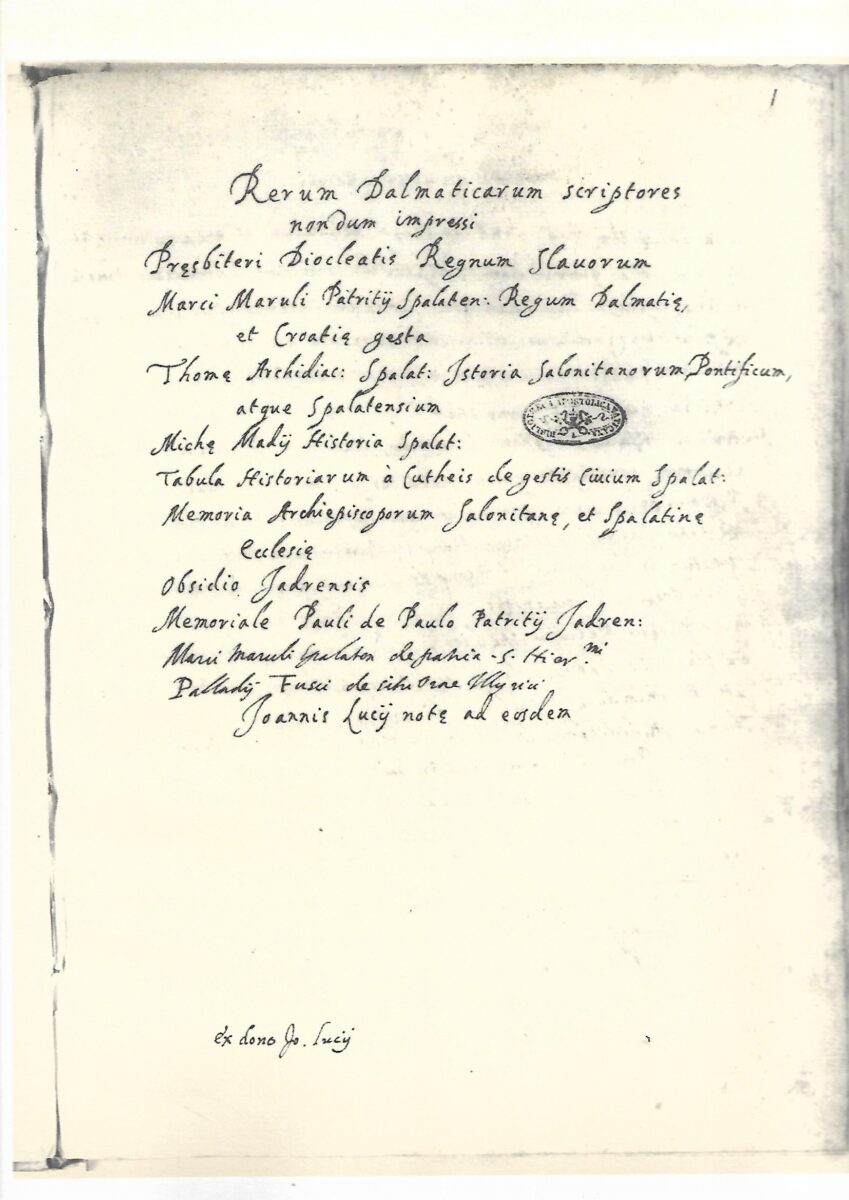 1
Rerum Dalmaticarum scriptores
nondum impressi
Pręsbiteri Diocleatis Regnum Slauorum
Marci Maruli Patritij Spalaten: Regum Dalmatię,
et Croatię gesta
Thomę Archidiac: Spalat: Istoria Salonitanorum Pontificum,
atque Spalatensium
BIBLIOTHECA APOSTOLICA VATICANA
Michę Madij Historia Spalat:
Tabula Historiarum à Cutheis de gestis Ciuium Spalat:
Memoria Archiepiscoporum Salonitanę, et Spalatinę
Ecclesię
Obsidio Jadrensis
Memoriale Pauli de Paulo Patritij Jadren:
Marci Maruli Spalaten de patria S. Hier.mi
Palladij Fusci de situ orae Illyrici
Joannis Lucij notę ad eosdem
ex dono Jo. Lucij